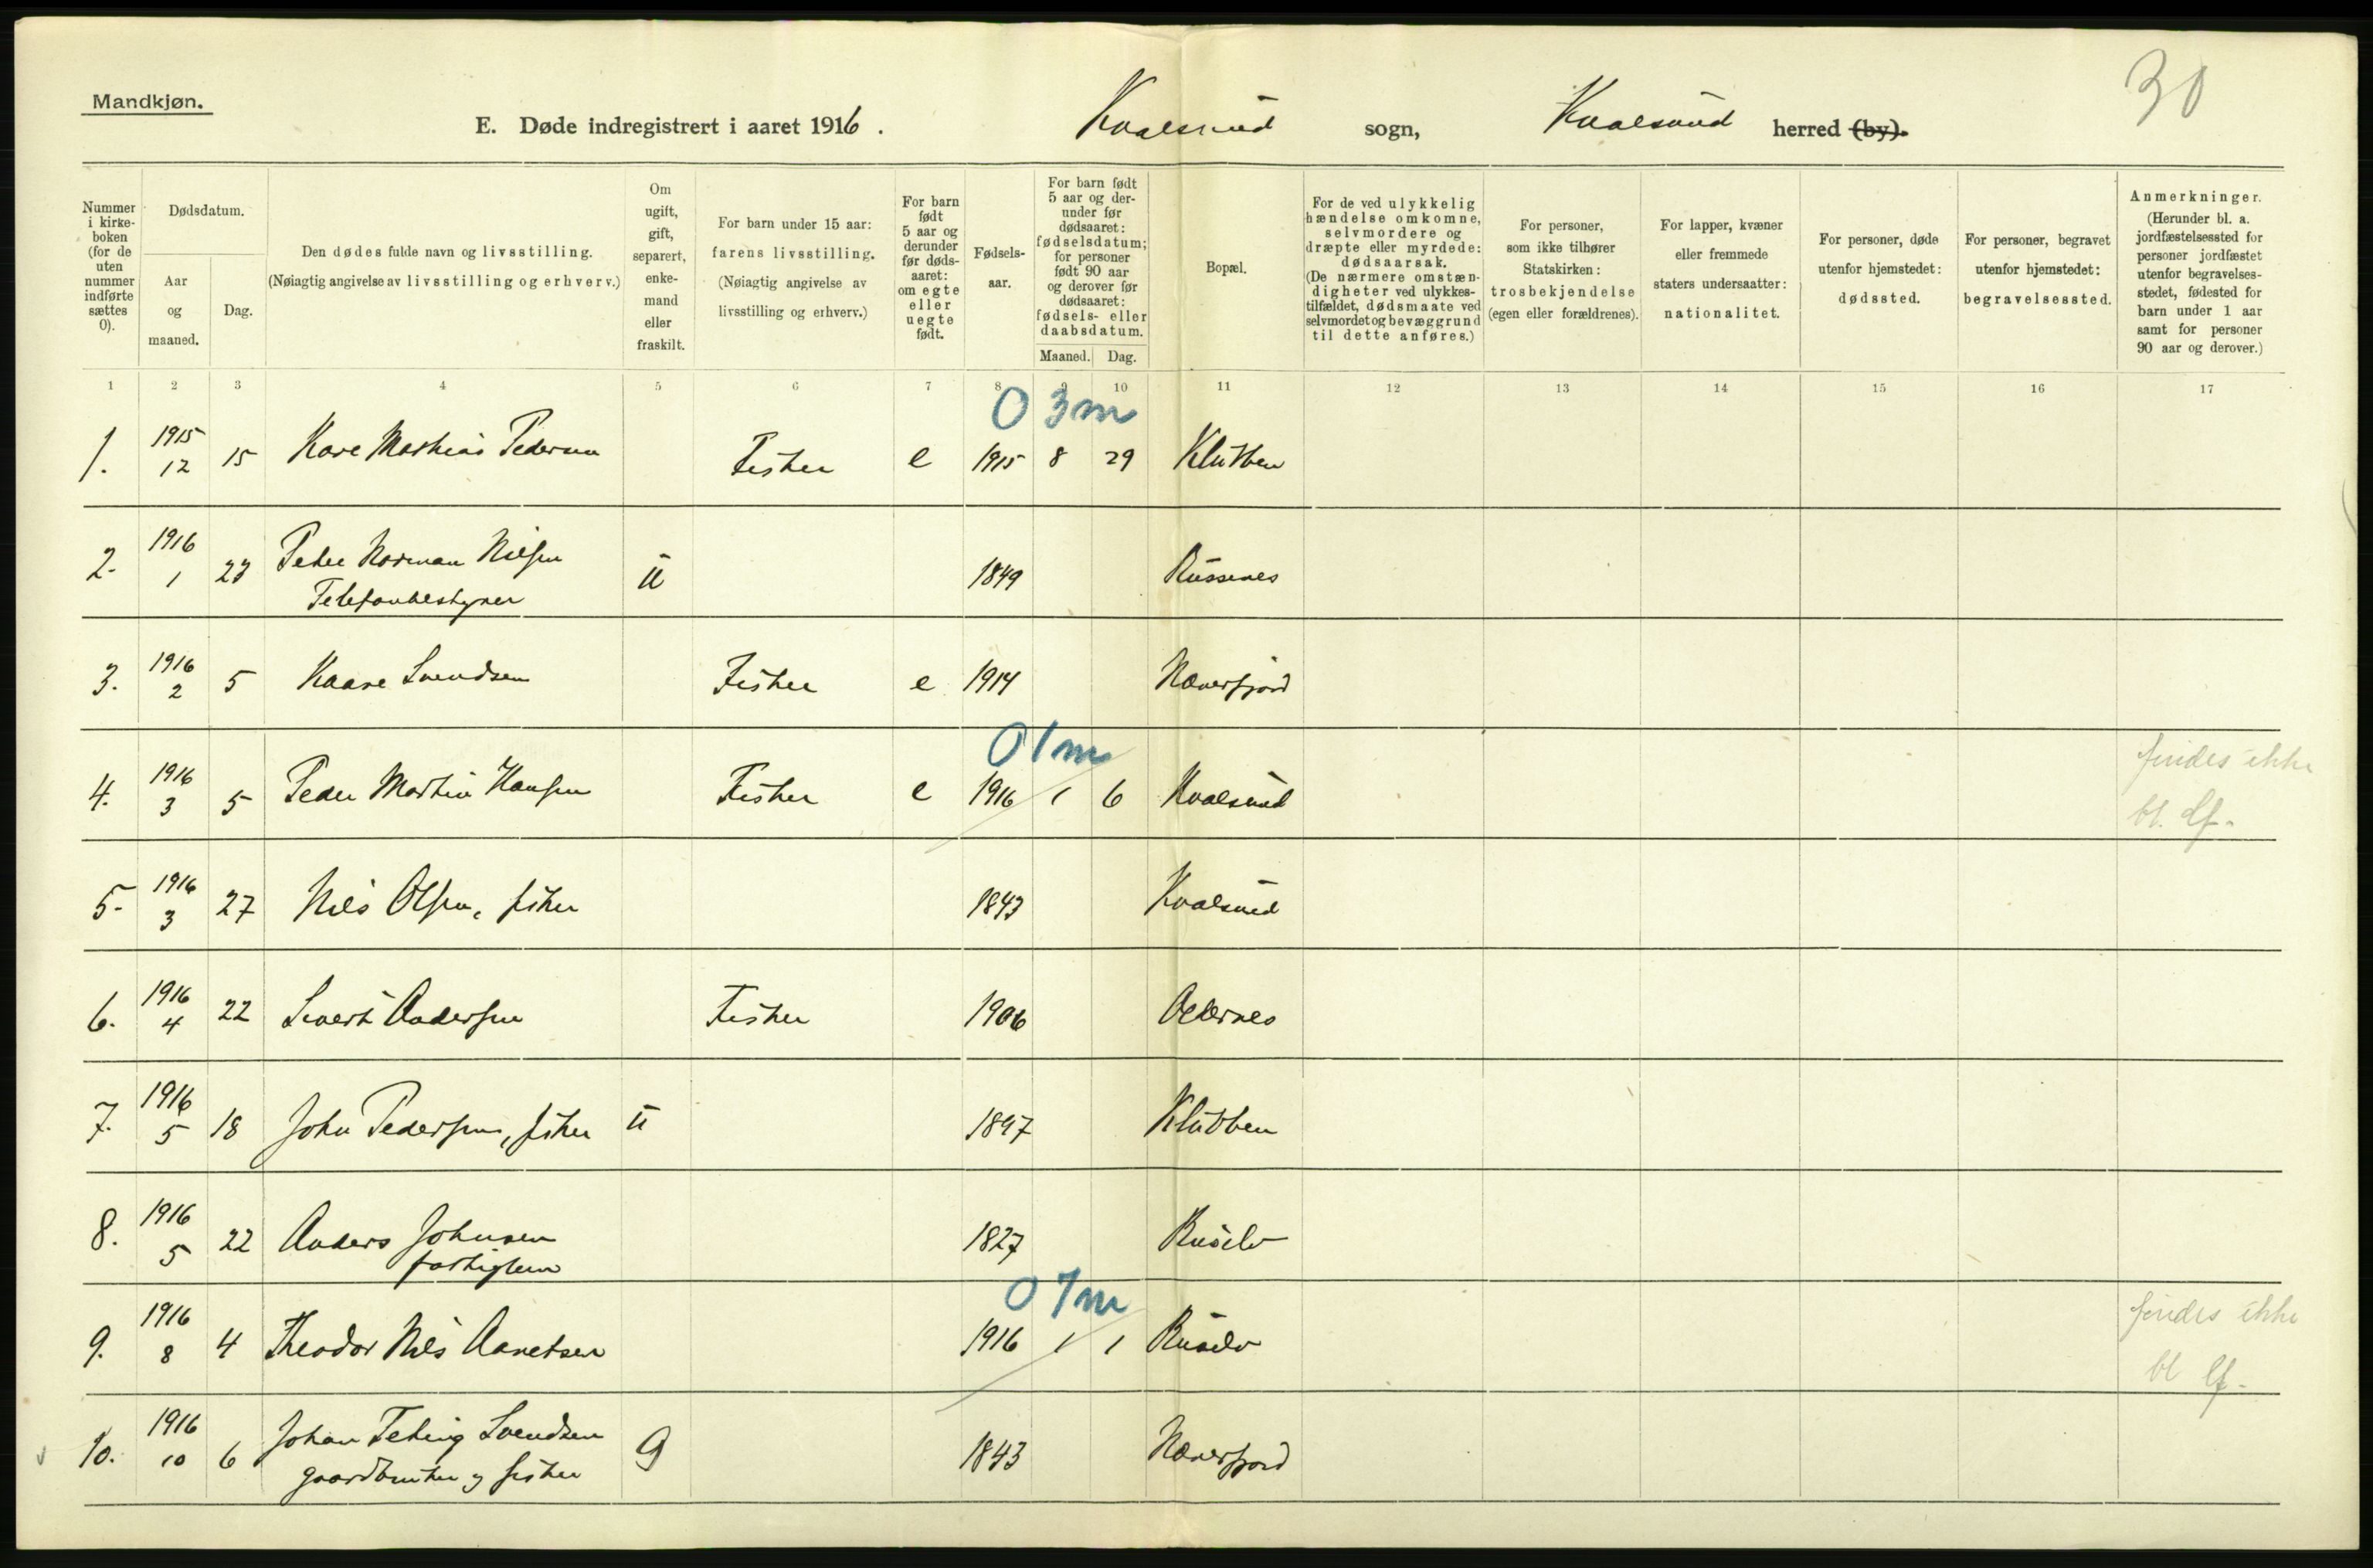 Mandkjøn.
30
E. Døde indregistrert i aaret 1916. Kvalsund sogn, Kvalsund herred (by).
Nummer i kirkeboken (for de uten nummer indførte sættes 0).
Dødsdatum.
Aar og maaned.
Dag.
Den dødes fulde navn og livsstilling.
(Nøiagtig angivelse av livsstilling og erhverv.)
Om ugift, gift, separert, enkemand eller fraskilt.
For barn under 15 aar: farens livsstilling.
(Nøiagtig angivelse av livsstilling og erhverv.)
For barn født 5 aar og derunder før dødsaaret: om egte eller uegte født.
Fødselsaar.
For barn født 5 aar og derunder før dødsaaret: fødselsdatum; for personer født 90 aar og derover før dødsaaret: fødsels- eller daabsdatum.
Maaned. Dag.
Bopæl.
For de ved ulykkelig hændelse omkomne, selvmordere og dræpte eller myrdede: dødsaarsak.
(De nærmere omstændigheter ved ulykkestilfældet, dødsmaate ved selvmordet og bevæggrund til dette anføres.)
For personer, som ikke tilhører Statskirken: trosbekjendelse (egen eller forældrenes).
For lapper, kvæner eller fremmede staters undersaatter: nationalitet.
For personer, døde utenfor hjemstedet: dødssted.
For personer, begravet utenfor hjemstedet: begravelsessted.
Anmerkninger.
(Herunder bl. a. jordfæstelsessted for personer jordfæstet utenfor begravelsesstedet, fødested for barn under 1 aar samt for personer 90 aar og derover.)
1 2 3 4 5 6 7 8 9 10 11 12 13 14 15 16 17
0 3 m
1. 1915 12 15 Kare Mathias Pedersen Fisker e 1915 8 29 Klubben
2. 1916 1 23 Peder Norman Nilsen u 1849 Russenes
Telefonbestyrer
3. 1916 2 5 Kaare Svendsen Fisker e 1914 Næverfjord
0 1 m
4. 1916 3 5 Peder Martin Hansen Fisker e 1916 1 6 Kvalsund findes ikke
bl. lf.
5. 1916 3 27 Nils Olsen, fisker 1843 Kvalsund
6. 1916 4 22 Sivert Andersen Fisker 1906
7. 1916 5 18 John Pedersen, fisker u 1897 Klubben
8. 1916 5 22 Anders Johnsen 1827 Ruselv
fattiglem
0 7 m
9. 1916 8 4 Theodor Nils Aanetsen 1916 1 1 Ruselv findes ikke
bl lf.
10. 1916 10 6 Johan Svendsen g 1843 Næverfjord
gaardbruker og fisker